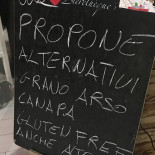 PROPONE
ALTERNATIVI
GRANO ARSO
CANAPA
GLUTEN FREE
ANCHE